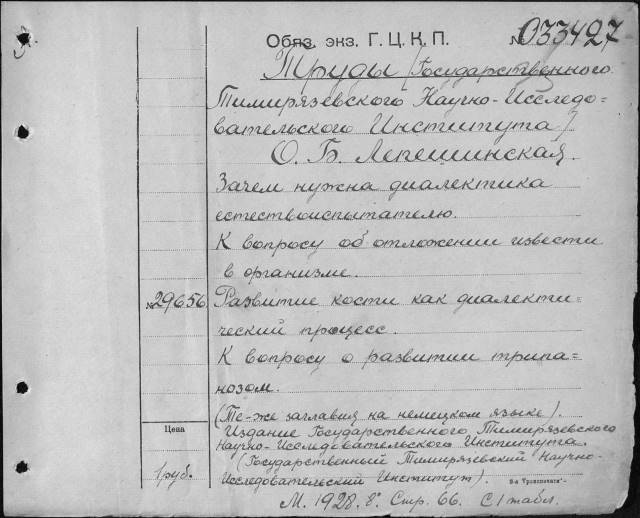 Обяз. экз. Г. Ц. К. П. № 033427
Труды (Государственного
Тимирязевского Научно-Исследо=
вательского Института)
О. Б. Лепешинская.
Зачем нужна диалектика
естествоиспытателю.
К вопросу об отложении извести
в организме.
№29656. Развитие кости как диалекти=
ческий процесс.
К вопросу о развитии трипа=
нозом.
(Те-же заглавия на немецком языке).
Цена
Издание Государственного Тимирязевского
Научно-Исследовательского Института.
(Государственный Тимирязевский Научно-
1 руб. Исследовательский Институт).
М. 1928. г. Стр. 66. С 1 табл.